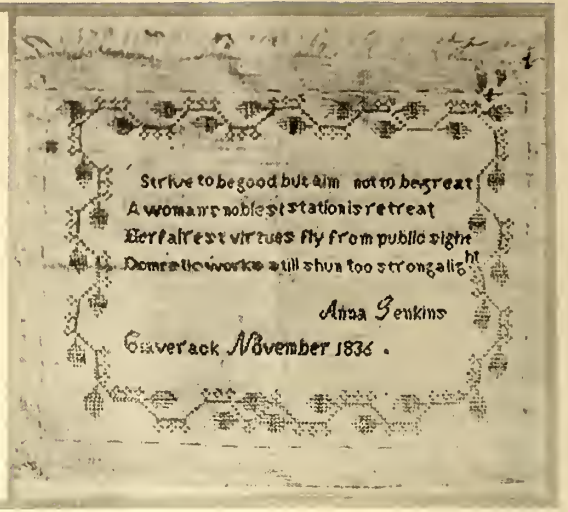 Strive to be good but aim not to be great
A womans noblest station is retreat
Her fairest virtues fly from public sight
Domestic works still shun too strong a light
Anna Jenkins
Claverack November 1836.